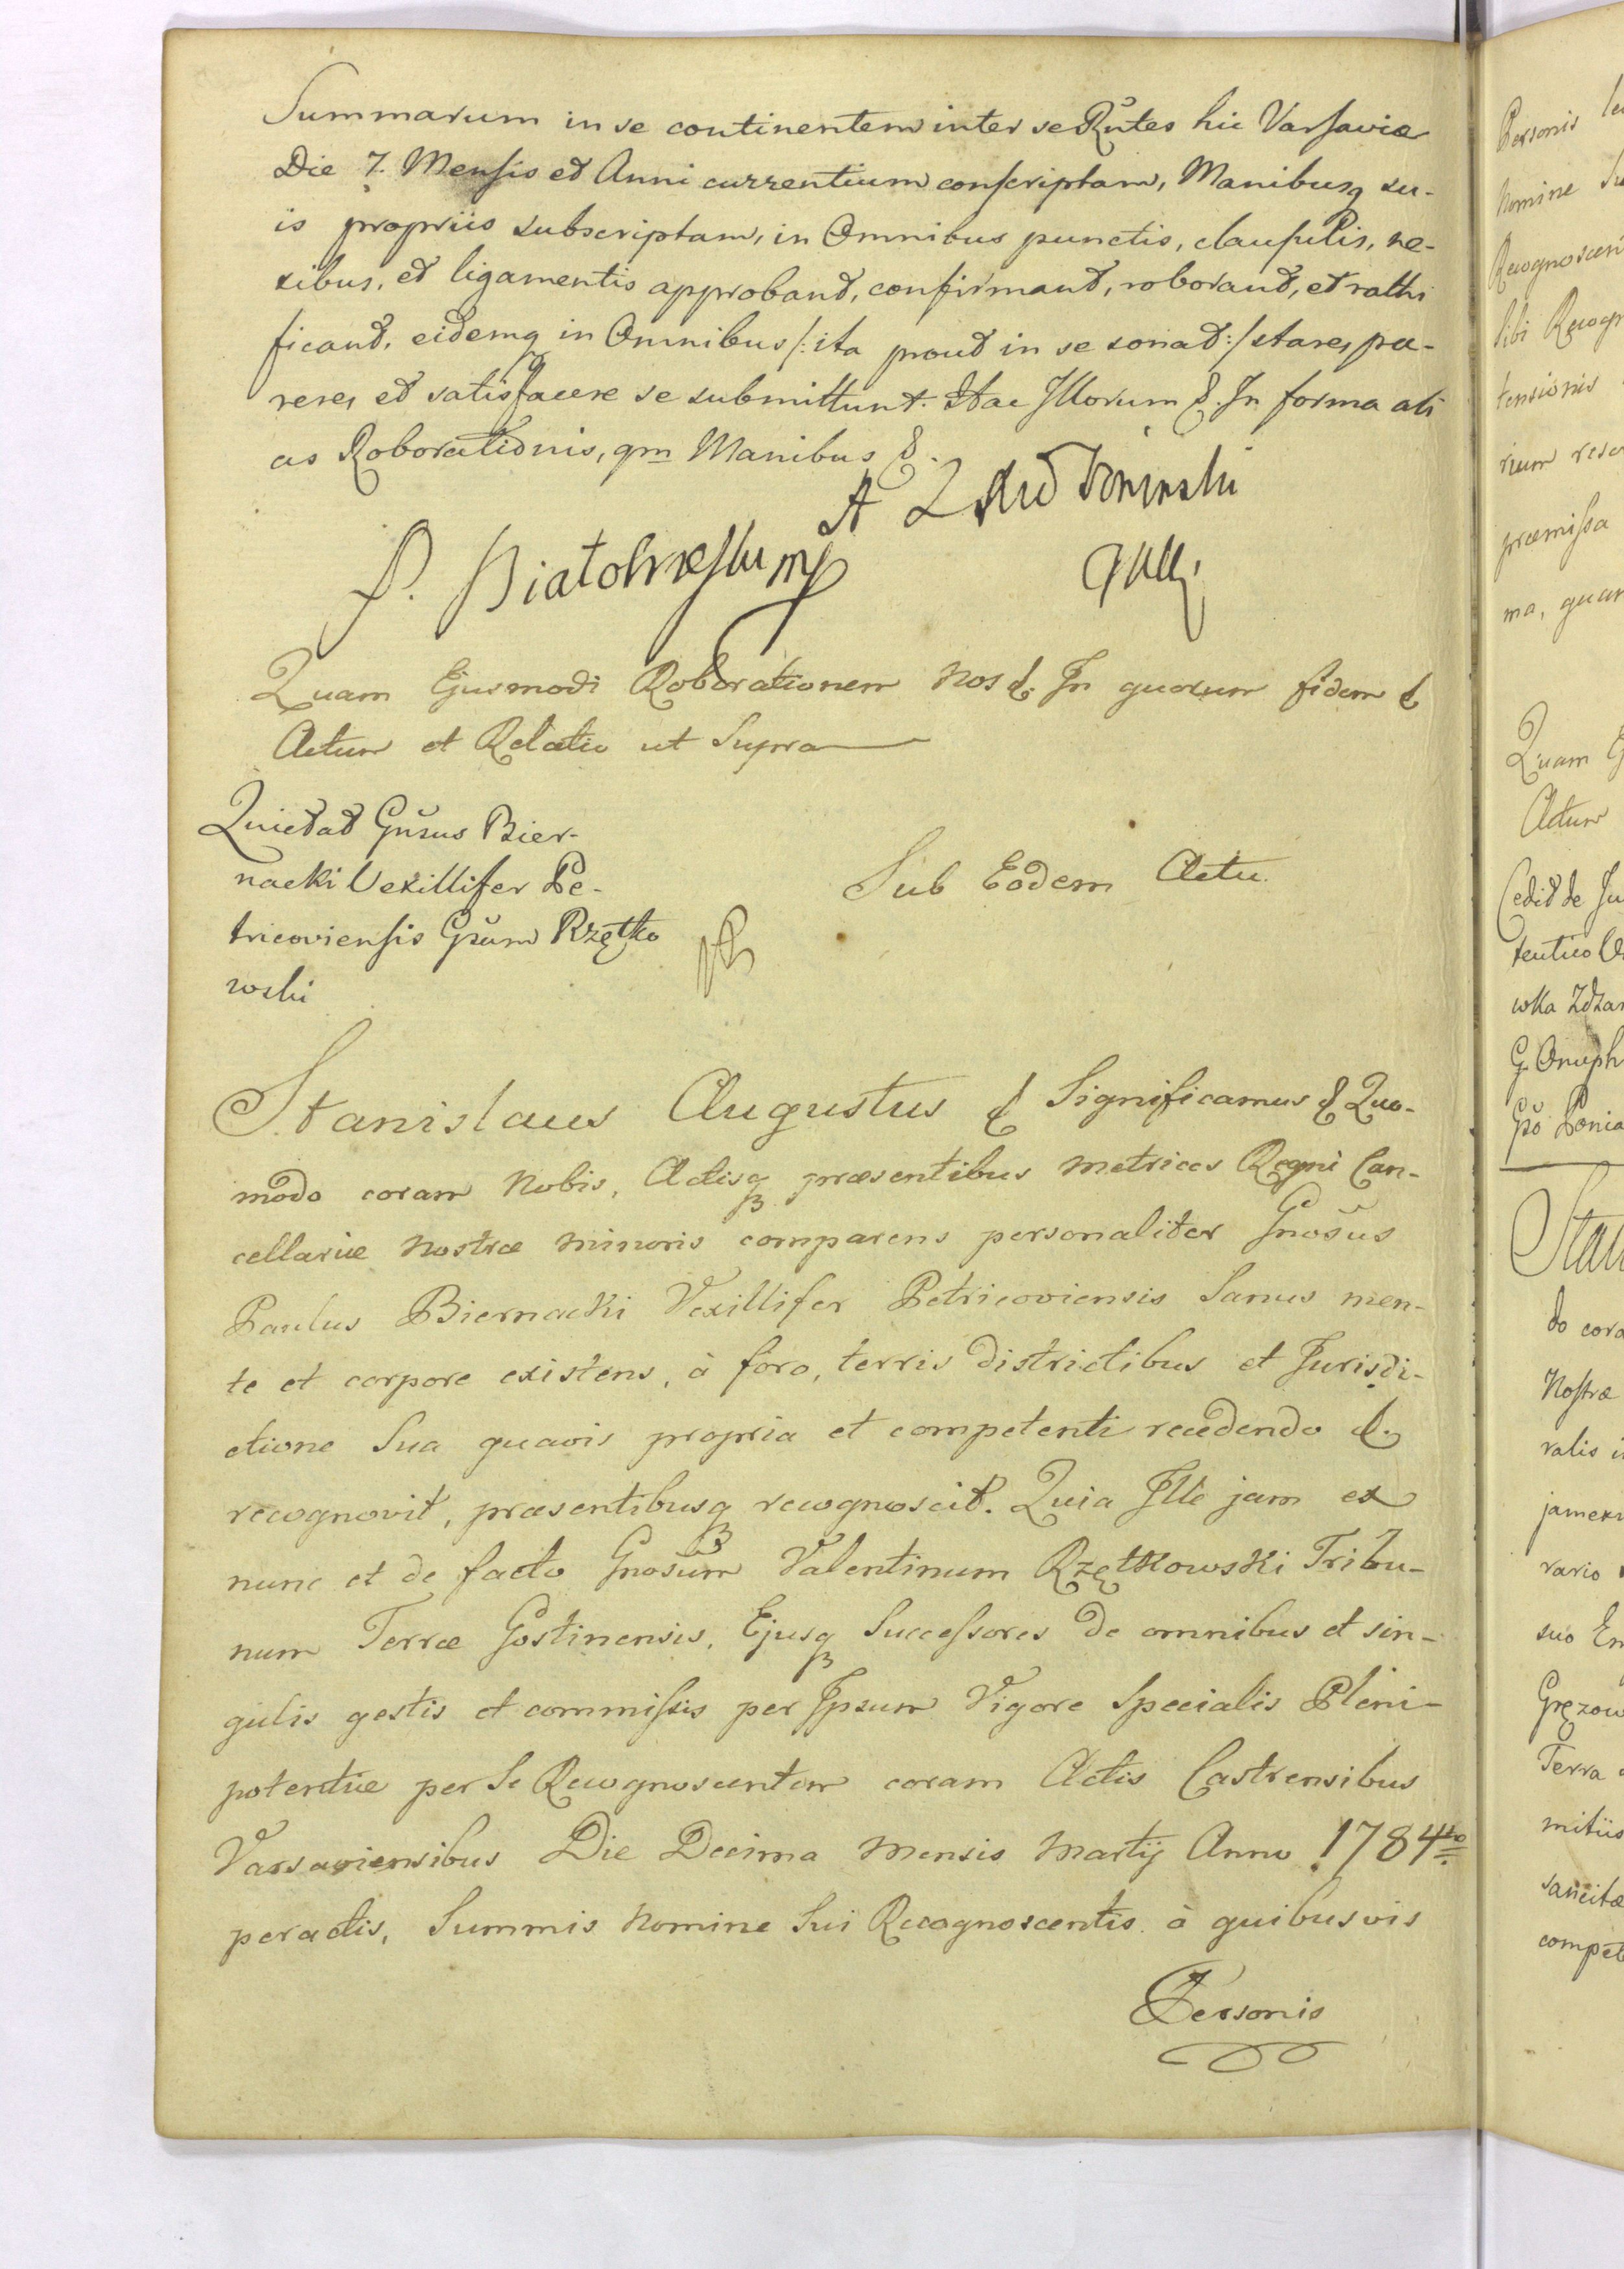 Summarum in se continentem inter se Rñtes hic Varsaviæ
Die 7. Mensis et Anni currentium conscriptam, Manibusq su-
is propriis subscriptam, in Omnibus punctis, clausulis, ne-
xibus, et ligamentis approbant, confirmant, roborant, et rathi
ficant, eidemq in Omnibus /: ita prout in se sonat :/ stare, pa-
rere, et satisfacere se submittunt. Hac Illorum &. In forma ali
as Roborationis, qm Manibus &.
A
P.
Quam Ejusmodi Roborationem Nos &. In quorum fidem &
Actum et Relatio ut Supra
Quietat Gnsus Bier-
nacki Vexillifer Pe-
tricoviensis Gsum Rzętko
wski
Sub Eodem Actu.
Stanislaus Augustus & Significamus & Quo-
modo coram Nobis, Actisq præsentibus Metrices Regni Can-
cellariæ Nostræ Minoris comparens personaliter Gnosus
Paulus Biernacki Vexillifer Petricoviensis Sanus men-
te et corpore existens, à foro, terris districtibus et Jurisdi-
ctione Sua quavis propria et competenti recedendo &.
recognovit, præsentibusq recognoscit. Quia Ille jam ex
nunc et de facto Gnosum Valentinum Rzętkowski Tribu-
num Terræ Gostinensis, Ejusq Successores de omnibus et sin-
gulis gestis et commissis per Ipsum Vigore Specialis Pleni-
potentiæ per Se Recognoscentem coram Actis Castrensibus
Varsaviensibus Die Decima Mensis Martij Anno 1784to
peractis, Summis Nomine Sui Recognoscentis à quibusvis
Personis
Personis
Nomine
Recognoscen
sibi Recogn
tensionis
rium reser
præmissa
ma, quar
Quam
Actum
Cedit de Ju
tentico
wka
G. Onuph
Gso Ponia
do cora
Nostræ
ralis i
jamex
vario
suo
Terra
mitiis
sancitæ
compet